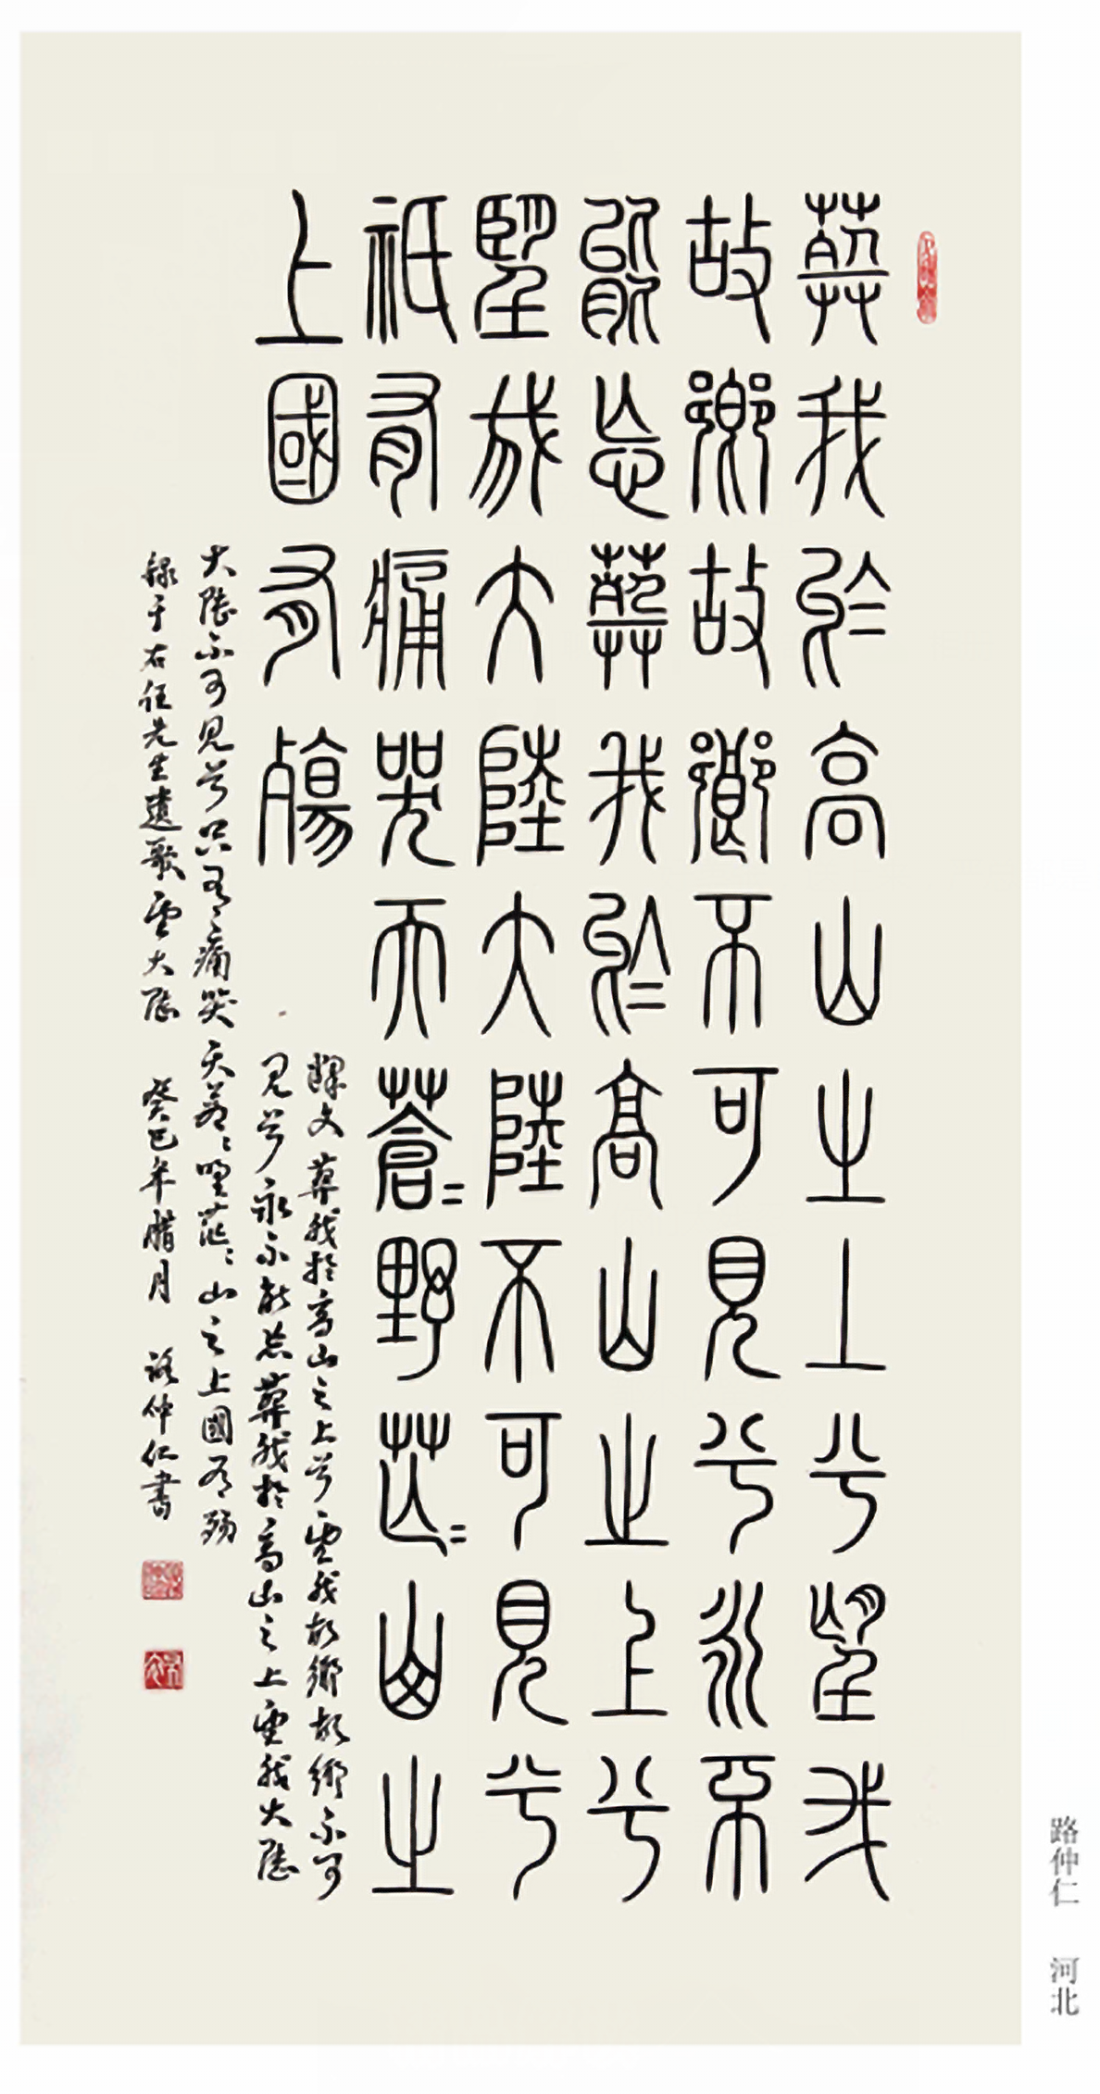 葬我於高山之上兮望我
故鄉故鄉不可見兮永不
能忘葬我於高山之上兮
望我大陸大陸不可見兮
祇有痛哭天蒼〻野茫〻山之
上國有殤
釋文 葬我於高山之上兮望我故鄉故鄉不可
見兮永不能忘葬我於高山之上望我大陸
大陸不可見兮只有痛哭天蒼〻野茫〻山之上國有殤
錄于右任先生遺歌望大陸 癸巳年臘月 路仲仁書
路仲仁 河北